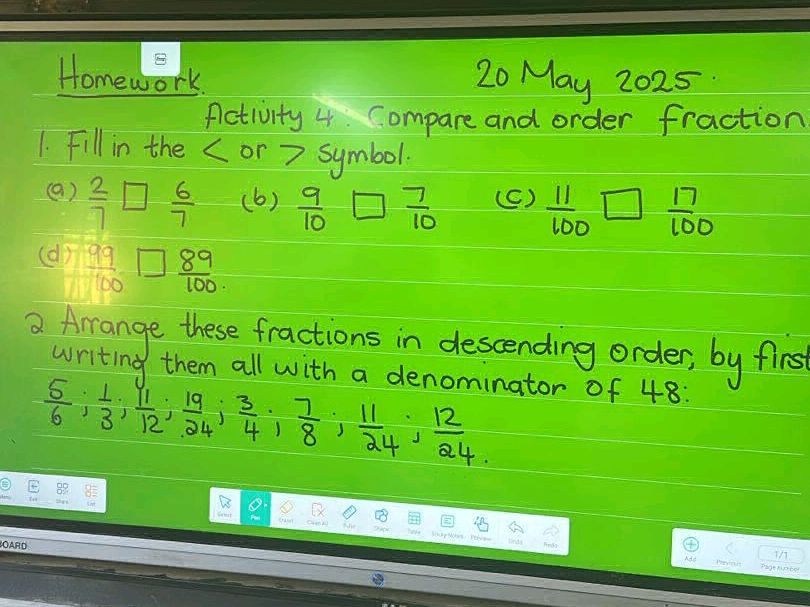 Homework
20 May 2025.
Activity 4: Compare and order fraction
1. Fill in the < or > symbol.
(a) 2/7 □ 6/7 (b) 9/10 □ 7/10 (c) 11/100 □ 17/100
(d) 99/100 □ 89/100.
2 Arrange these fractions in descending order, by first
writing them all with a denominator of 48:
5/6; 1/3; 11/12; 19/24; 3/4; 7/8; 11/24; 12/24.
Menu Exit Share List
Select Pen Eraser Clean All Ruler Shape Table Sticky Notes Preview Undo Redo
Add Previous 1/1
Page number
BOARD